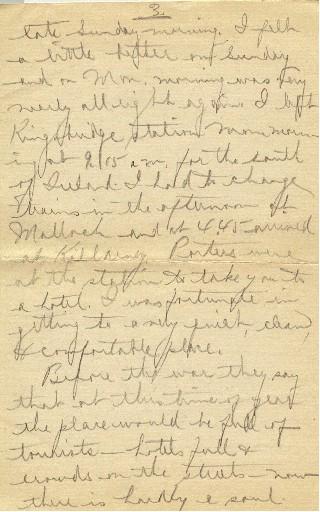 3.
late Sunday morning. I felt
a little better on Sunday
and on Mon. morning was very
nearly all right again. I left
Kingsbridge Station Mon. morn-
ing at 9:15 a.m. for the south
of Ireland. I had to change
trains in the afternoon at
Mallach and at 4.45 arrived
at Killarney. Porters were
at the station to take you to
a hotel. I was fortunate in
getting to a very quiet, clean,
& comfortable place.
Before the war they say
that at this time of year
the place would be full of
tourists – hotels full &
crowds on the streets – now
there is hardly a soul.